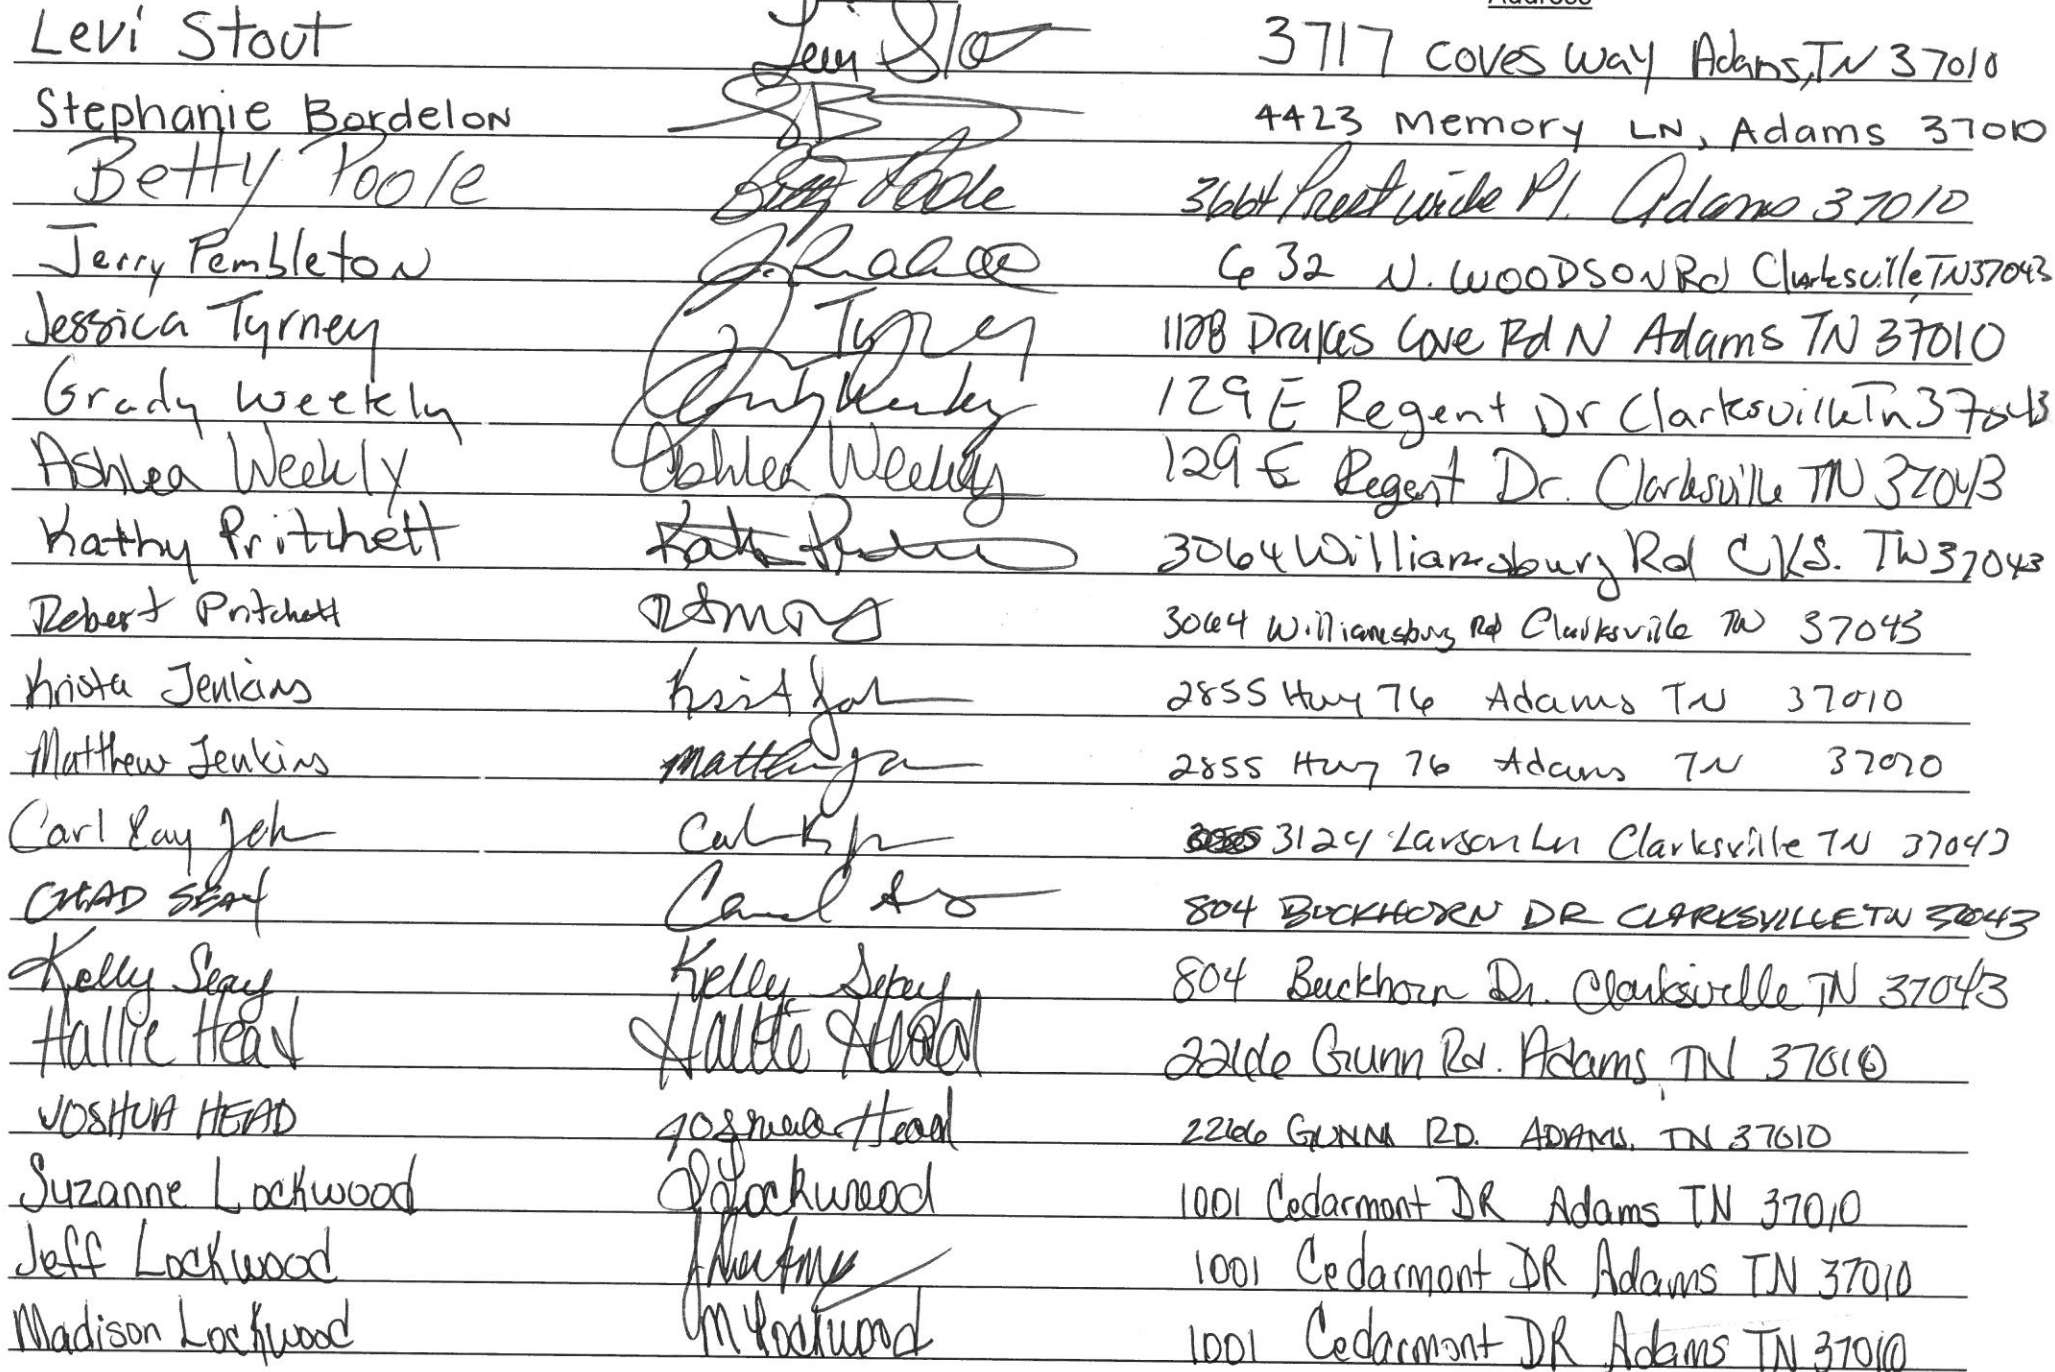 Address
Levi Stout Levi Sto 3717 Coves Way Adams, TN 37010
Stephanie Bordelon SB 4423 Memory LN, Adams 37010
Betty Poole Betty Poole 3664 Prestwicke Pl. Adams 37010
Jerry Pembleton 632 N. WOODSON Rd Clarksville, TN 37043
Jessica Tyrney J Tyrney 1188 Drakes Cove Rd N Adams TN 37010
Grady Weekly Grady Weekly 129 E Regent Dr Clarksville Tn 37043
Ashlea Weekly Ashlea Weekly 129 E Regent Dr. Clarksville TN 37043
Kathy Pritchett 3064 Williamsburg Rd CKS. TN 37043
Robert Pritchett 3064 Williamsburg Rd Clarksville TN 37043
Krista Jenkins 2855 Hwy 76 Adams TN 37010
Matthew Jenkins 2855 Hwy 76 Adams TN 37010
Carl Ray 3124 Larson Ln Clarksville TN 37043
CHAD SEAY 804 BUCKHORN DR CLARKSVILLE TN 37043
Kelly Seay Kelly Seay 804 Buckhorn Dr. Clarksville TN 37043
Hallie Head Hallie Head 2266 Gunn Rd. Adams, TN 37010
JOSHUA HEAD Joshua Head 2266 GUNN RD. ADAMS, TN 37010
Suzanne Lockwood S Lockwood 1001 Cedarmont DR Adams TN 37010
Jeff Lockwood 1001 Cedarmont DR Adams TN 37010
Madison Lockwood M Lockwood 1001 Cedarmont DR Adams TN 37010